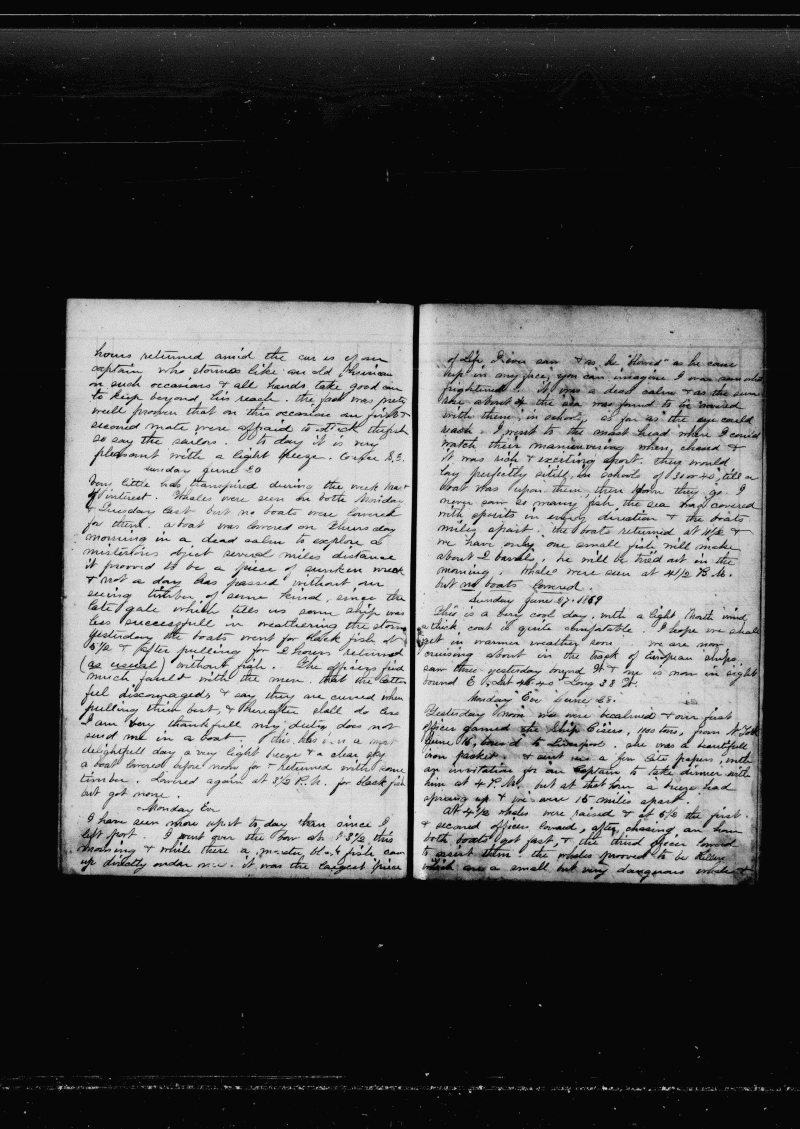 hours returned amid the curses of our
captain who storms like an old
on such occasions & all hands take good care
to keep beyond his reach. the fact was pretty
well proven that on this occasion our first &
second mate were affraid to the fish
so say the sailors. to day it is very
pleasant with a light breeze. Course S.E.
Sunday June 20
Very little has transpired during the week
of interest. Whales were seen on both Monday
& Tuesday last but no boats were lowered
for them. a boat was lowered on Thursday
morning in a dead calm to explore a
misterious object several miles distance
it proved to be a piece of sunken wreck
& not a day has passed without our
seeing timber of some kind, since the
late gale which tells us some ship was
less successfull in weathering the storm
yesterday the boats went for black fish at
5 1/2 & after pulling for 2 hours returned
(as usual) without fish. The officers find
much fault with the men. that the latter
feel discouraged & say they are cursed when
pulling their best, & hereafter shall do less
I am very thankfull my duty does not
send me in a boat. this has been a most
delightfull day a very light breeze & a clear sky
a boat lowered before noon for & returned with some
timber. Lowered again at 3 1/2 P.M. for black fish
but got none.
Monday Eve
I have seen more sport to day than since I
left port. I went over the bow at 3 1/2 this
morning & while there a monster black fish came
up directly under me. it was the largest piece
of life I ever saw & as he "blowed" as he came
up in my face you can imagine I was somewhat
frightened. it was a dead calm & as the sun
rose about the sea was found to be
with them, in schools, as far as the eye could
reach. I went to the mast head where I could
watch their maneuvering when chased &
it was rich & exciting sport. they would
lay perfectly still, in schools of 30 or 40, till a
boat was upon them, then down they go. I
never saw so many fish the sea was covered
with spouts in every direction & the boats
miles apart. the boats returned at 11 1/2 &
we have only one small fish. will make
about 2 barrels, he will be tried out in the
morning. Whales were seen at 4 1/2 P.M.
but no boats lowered.
Sunday June 27. 1869
This is a very cool day, with a light North wind,
a thick coat is quite comfortable. I hope we shall
get in warmer weather soon. we are now
cruising about in the track of European ships.
saw three yesterday bound W. & one is now in sight
bound E. Lat 40.40 Long 38 W.
Monday Eve June 28.
Yesterday noon we were becalmed & our first
officer gamed the Ship 1100 tons, from N. York
June 16, bound to Liverpool. she was a beautifull
iron packet & sent us a few late papers, with
an invitation for our Captain to take dinner with
him at 4 P.M. but at that hour a breeze had
sprung up & we were 15 miles apart.
At 4 1/2 whales were raised & at 5 1/2 the first
& second officers lowered, after chasing an hour
both boats got fast, & the third officer lowered
to assist them. the whales prooved to be Killers
which are a small but very dangerous whale &